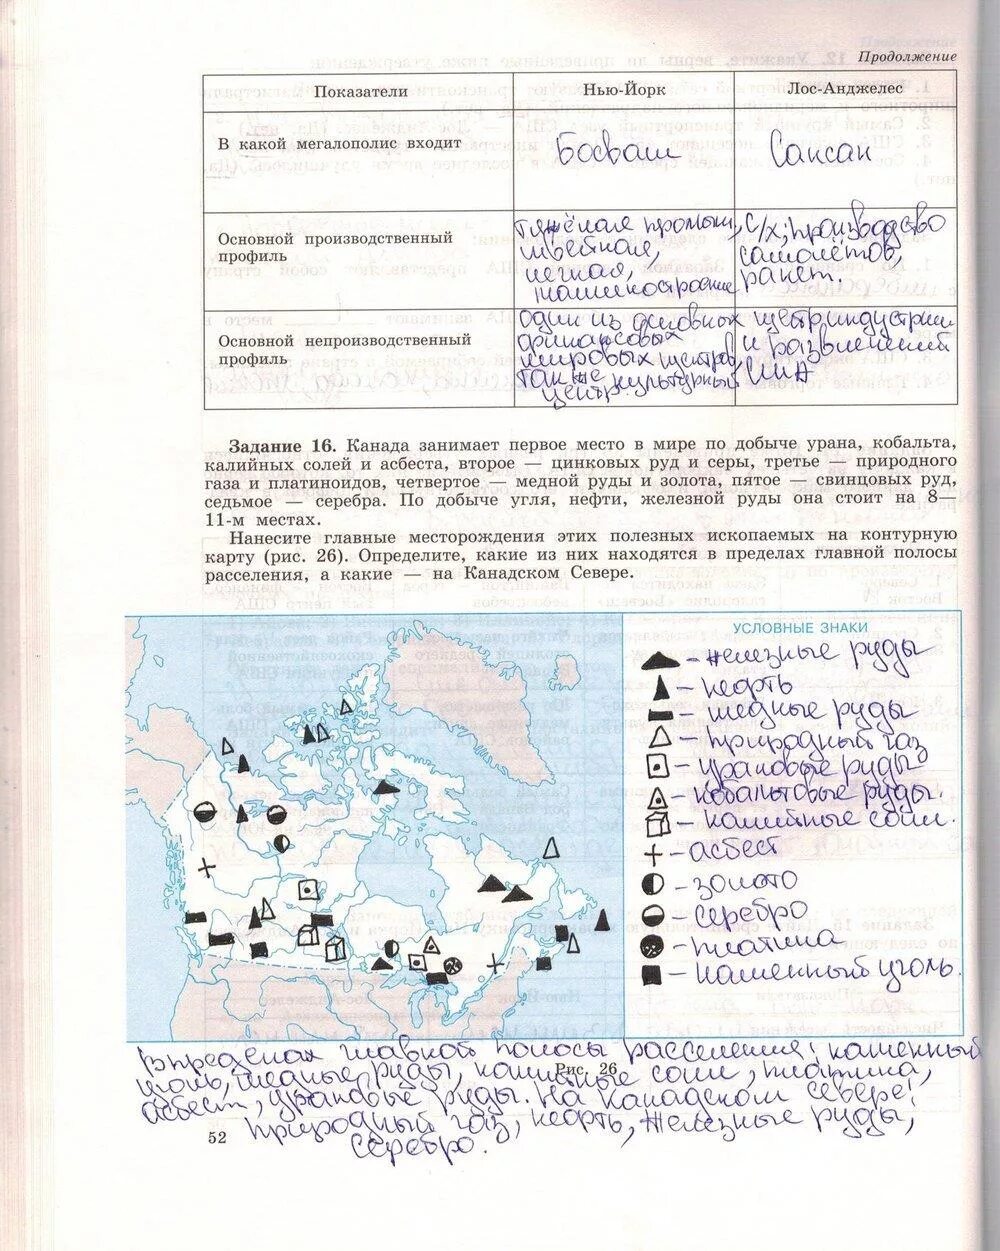 Продолжение
Показатели Нью-Йорк Лос-Анджелес
В какой мегалополис входит Босваш Сансан
Основной производственный
профиль
тяжёлая промыш,
швейная,
легкая,
машиностроение
с/х; производство
самолётов,
ракет.
Основной непроизводственный
профиль
один из основных
финансовых
мировых центров,
также культурный
центр.
центр индустрии
и развлечений
США
Задание 16. Канада занимает первое место в мире по добыче урана, кобальта,
калийных солей и асбеста, второе — цинковых руд и серы, третье — природного
газа и платиноидов, четвертое — медной руды и золота, пятое — свинцовых руд,
седьмое — серебра. По добыче угля, нефти, железной руды она стоит на 8—
11-м местах.
Нанесите главные месторождения этих полезных ископаемых на контурную
карту (рис. 26). Определите, какие из них находятся в пределах главной полосы
расселения, а какие — на Канадском Севере.
УСЛОВНЫЕ ЗНАКИ
- железные руды
- нефть
- медные руды
- природный газ
- урановые руды
- кобальтовые руды.
- калийные соли.
- асбест
- золото
- серебро
- платина
- каменный уголь.
В пределах главной полосы расселения: каменный
Рис. 26
уголь, медные руды, калийные соли, платина,
асбест, урановые руды. На Канадском севере:
природный газ, нефть, железные руды,
серебро.
52